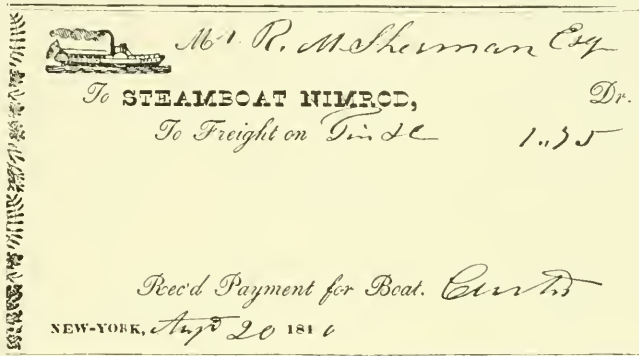 Mr. R. M Sherman Esq
To STEAMBOAT NIMROD, Dr.
To Freight on Tin &c 1.,75
Rec'd Payment for Boat. Curtis
NEW-YORK, Augt 20 1840